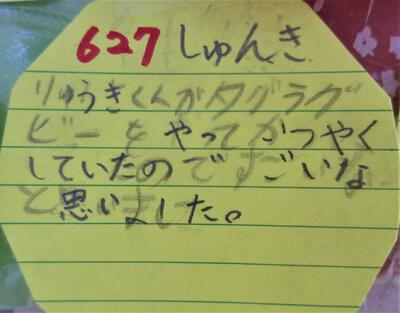 627 しゅんき
りゅうきくんがタグラグ
ビーをやってかつやく
していたのですごいな
と思いました。